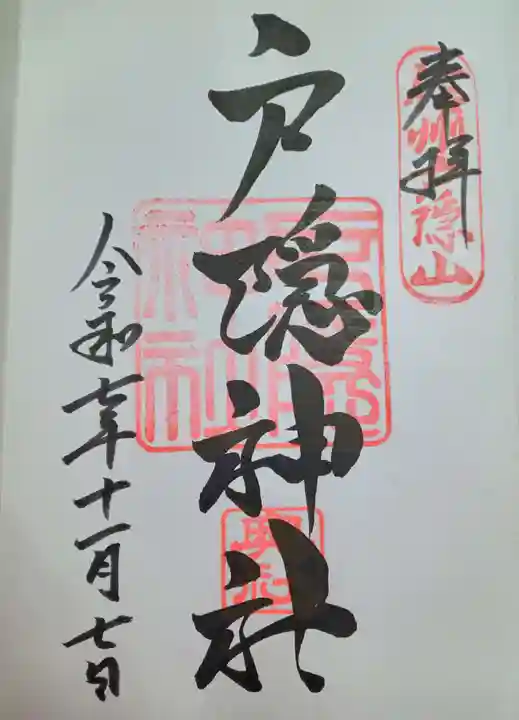 奉拝
信州戸隠山
戸隠神社
奥社
令和七年十一月七日